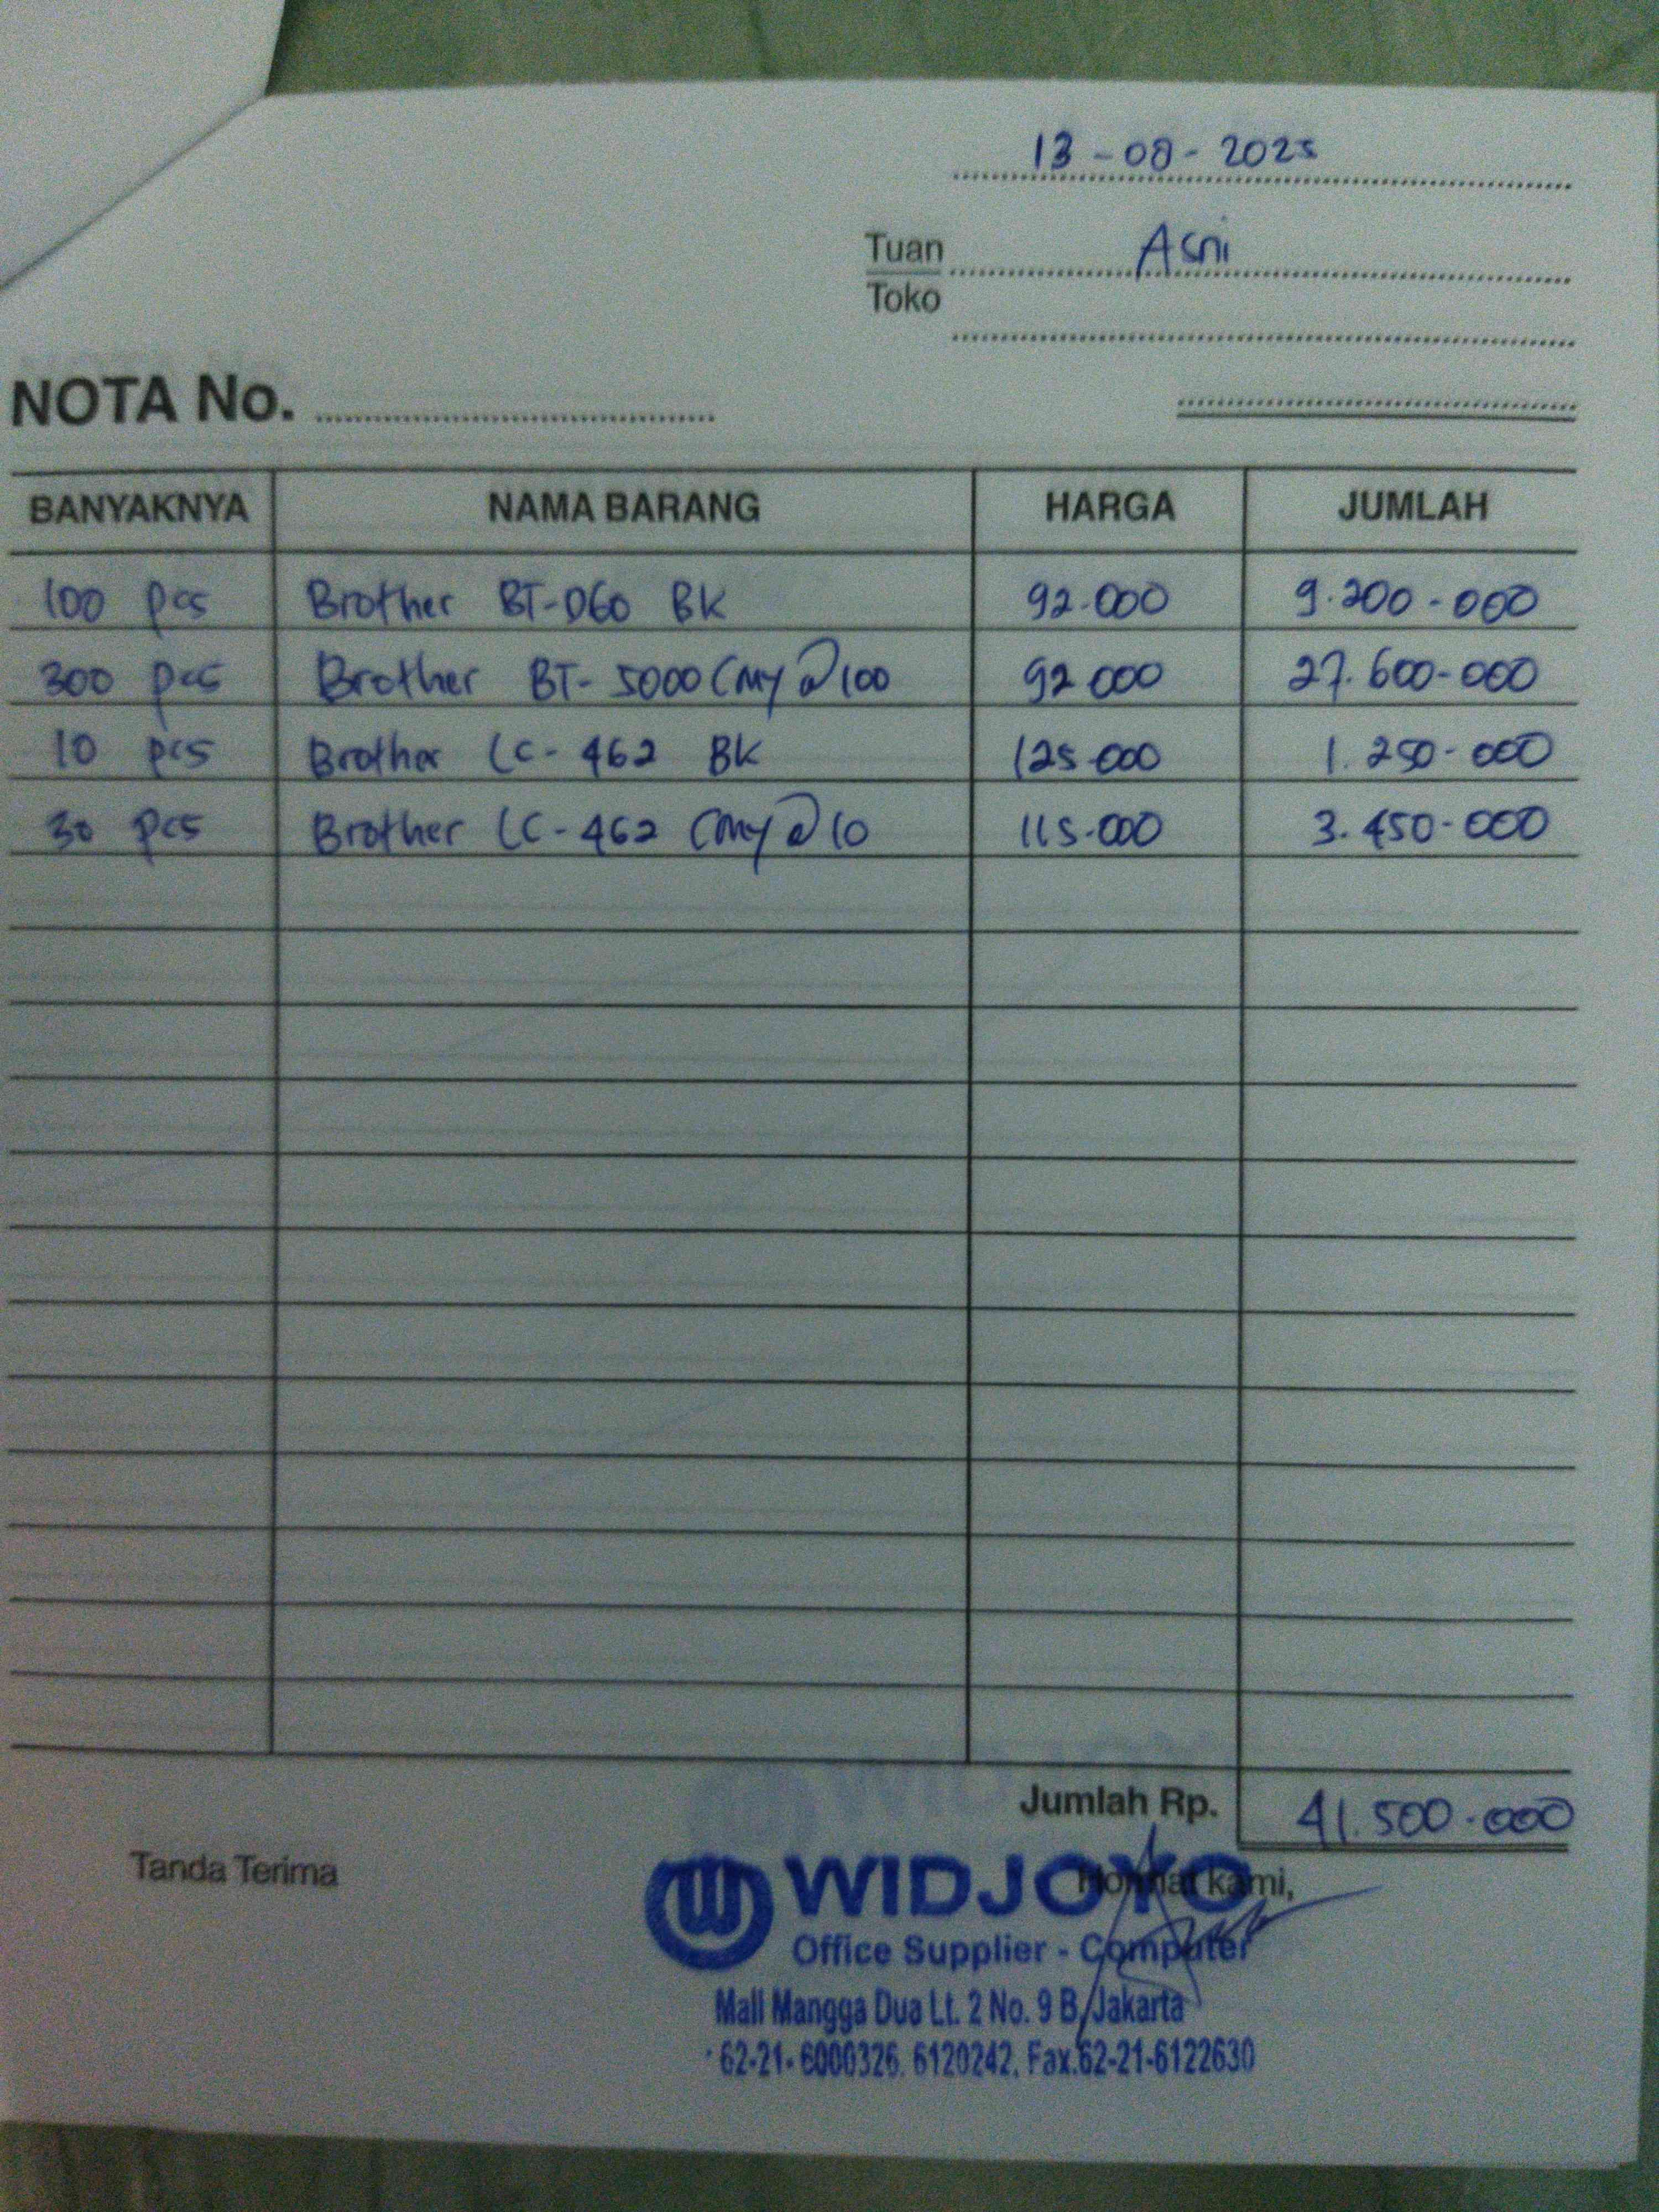 13-08-2025
Tuan Asni
Toko
NOTA No.
BANYAKNYA NAMA BARANG HARGA JUMLAH
100 pcs Brother BT-D60 BK 92.000 9.200-000
300 pcs Brother BT-5000 CMY @ 100 92.000 27.600-000
10 pcs Brother LC-462 BK 125.000 1.250-000
30 pcs Brother LC-462 CMY @ 10 115.000 3.450-000
Jumlah Rp. 41.500.000
Tanda Terima
Hormat kami,
WIDJOYO
Office Supplier - Computer
Mall Mangga Dua Lt. 2 No. 9 B, Jakarta
62-21-6000326, 6120242, Fax.62-21-6122630